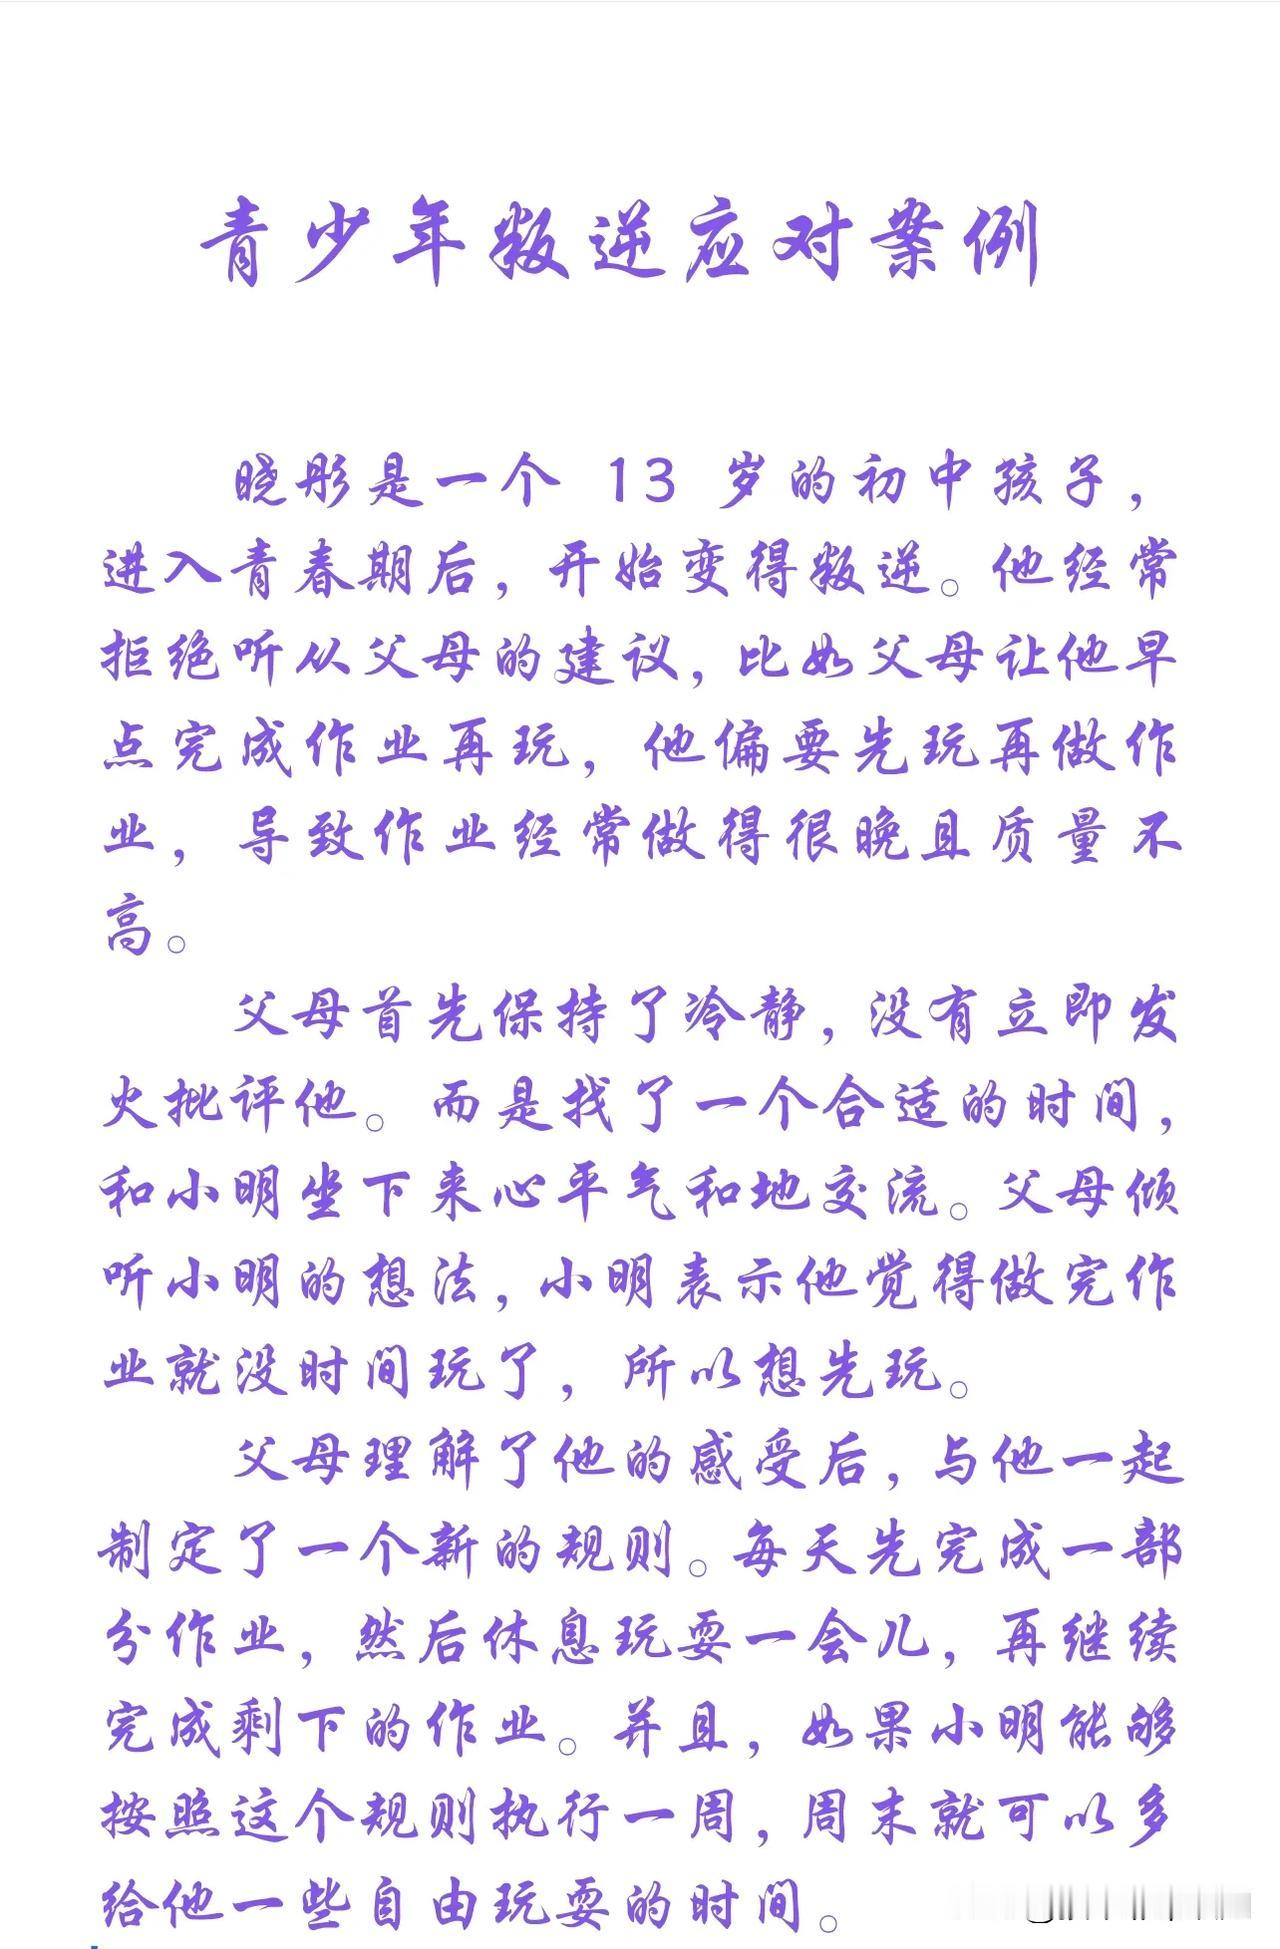 青少年叛逆应对案例
晓彤是一个 13 岁的初中孩子，
进入青春期后，开始变得叛逆。他经常
拒绝听从父母的建议，比如父母让他早
点完成作业再玩，他偏要先玩再做作
业，导致作业经常做得很晚且质量不
高。
父母首先保持了冷静，没有立即发
火批评他。而是找了一个合适的时间，
和小明坐下来心平气和地交流。父母倾
听小明的想法，小明表示他觉得做完作
业就没时间玩了，所以想先玩。
父母理解了他的感受后，与他一起
制定了一个新的规则。每天先完成一部
分作业，然后休息玩耍一会儿，再继续
完成剩下的作业。并且，如果小明能够
按照这个规则执行一周，周末就可以多
给他一些自由玩耍的时间。